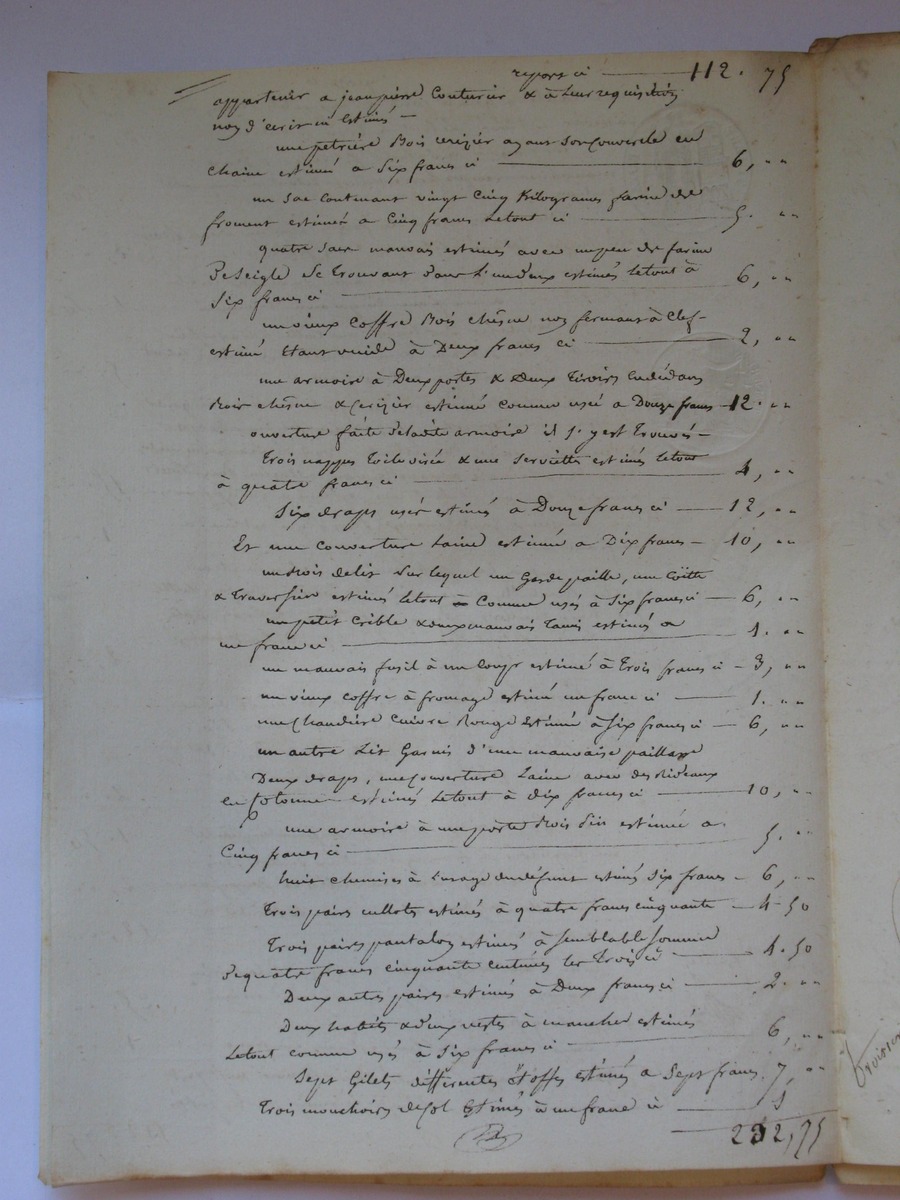 report ci 112. 75
appartenir a jeanpierre Couturier & à Leur requisition
non d'écrit cu Estimé
une petriere Bois cerizier ayant Son Couvercle en
chaine estimé a Six francs ci 6, "
un Sac Contenant vingt Cinq Kilogrames farine de
froment estimés a Cinq francs Letout ci 5. "
quatre sacs mauvais estimés avec unpeu de farine
De Seigle Se trouvant dans L'und'eux estimés Letout à
Six francs ci 6, "
un vieux Coffre Bois chesne non fermant à Clef
estimé Etant vuide à Deux francs ci 2, "
une armoire à Deux portes & deux Tiroirs Endédans
Bois chesne & Cerizier estimée Comme usé a Douze francs 12. "
ouverture faite deladite armoire il s'y est Trouvés
Trois nappes Toile & une Serviette estimés Letout
à quatre francs ci 4, "
Six draps usés estimés à Douze francs ci 12, "
Et une Couverture Laine estimée a Dix francs 10, "
un Bois delit Sur lequel un Garde paille, une Coitte
& Traversier estimés Letout Comme usés à Six francs ci 6, "
un petit Crible & deux mauvais Tamis estimés a
un franc ci 1. "
un mauvais fusil à un Coup estimé à Trois francs ci 3, "
un vieux Coffre à fromage estimé un franc ci 1. "
une Chaudière Cuivre Rouge estimée à Six francs ci 6, "
un autre Lit Garnis d'une mauvaise paillasse
Deux draps, une Couverture Laine avec des Rideaux
en Cotonne estimés Letout à dix francs ci 10, "
une armoire à une porte Bois Sin estimée a
Cinq francs ci 5. "
huit chemises à L'usage dudéfunt estimés Six francs 6, "
Trois paires cullotes estimés à quatre francs cinquante 4 50
Trois paires pantalon estimés à Semblable Somme
de quatre francs cinquante centimes les Trois ci 4. 50
Deux autres paires estimés à Deux francs ci 2. "
Deux habits & deux vestes à mancher estimés
Letout comme usés à Six francs ci 6, "
Sept Gilets différentes étoffes estimés a Sept francs 7, "
Trois mouchoirs de Col Estimés à un franc ci 1
232, 75